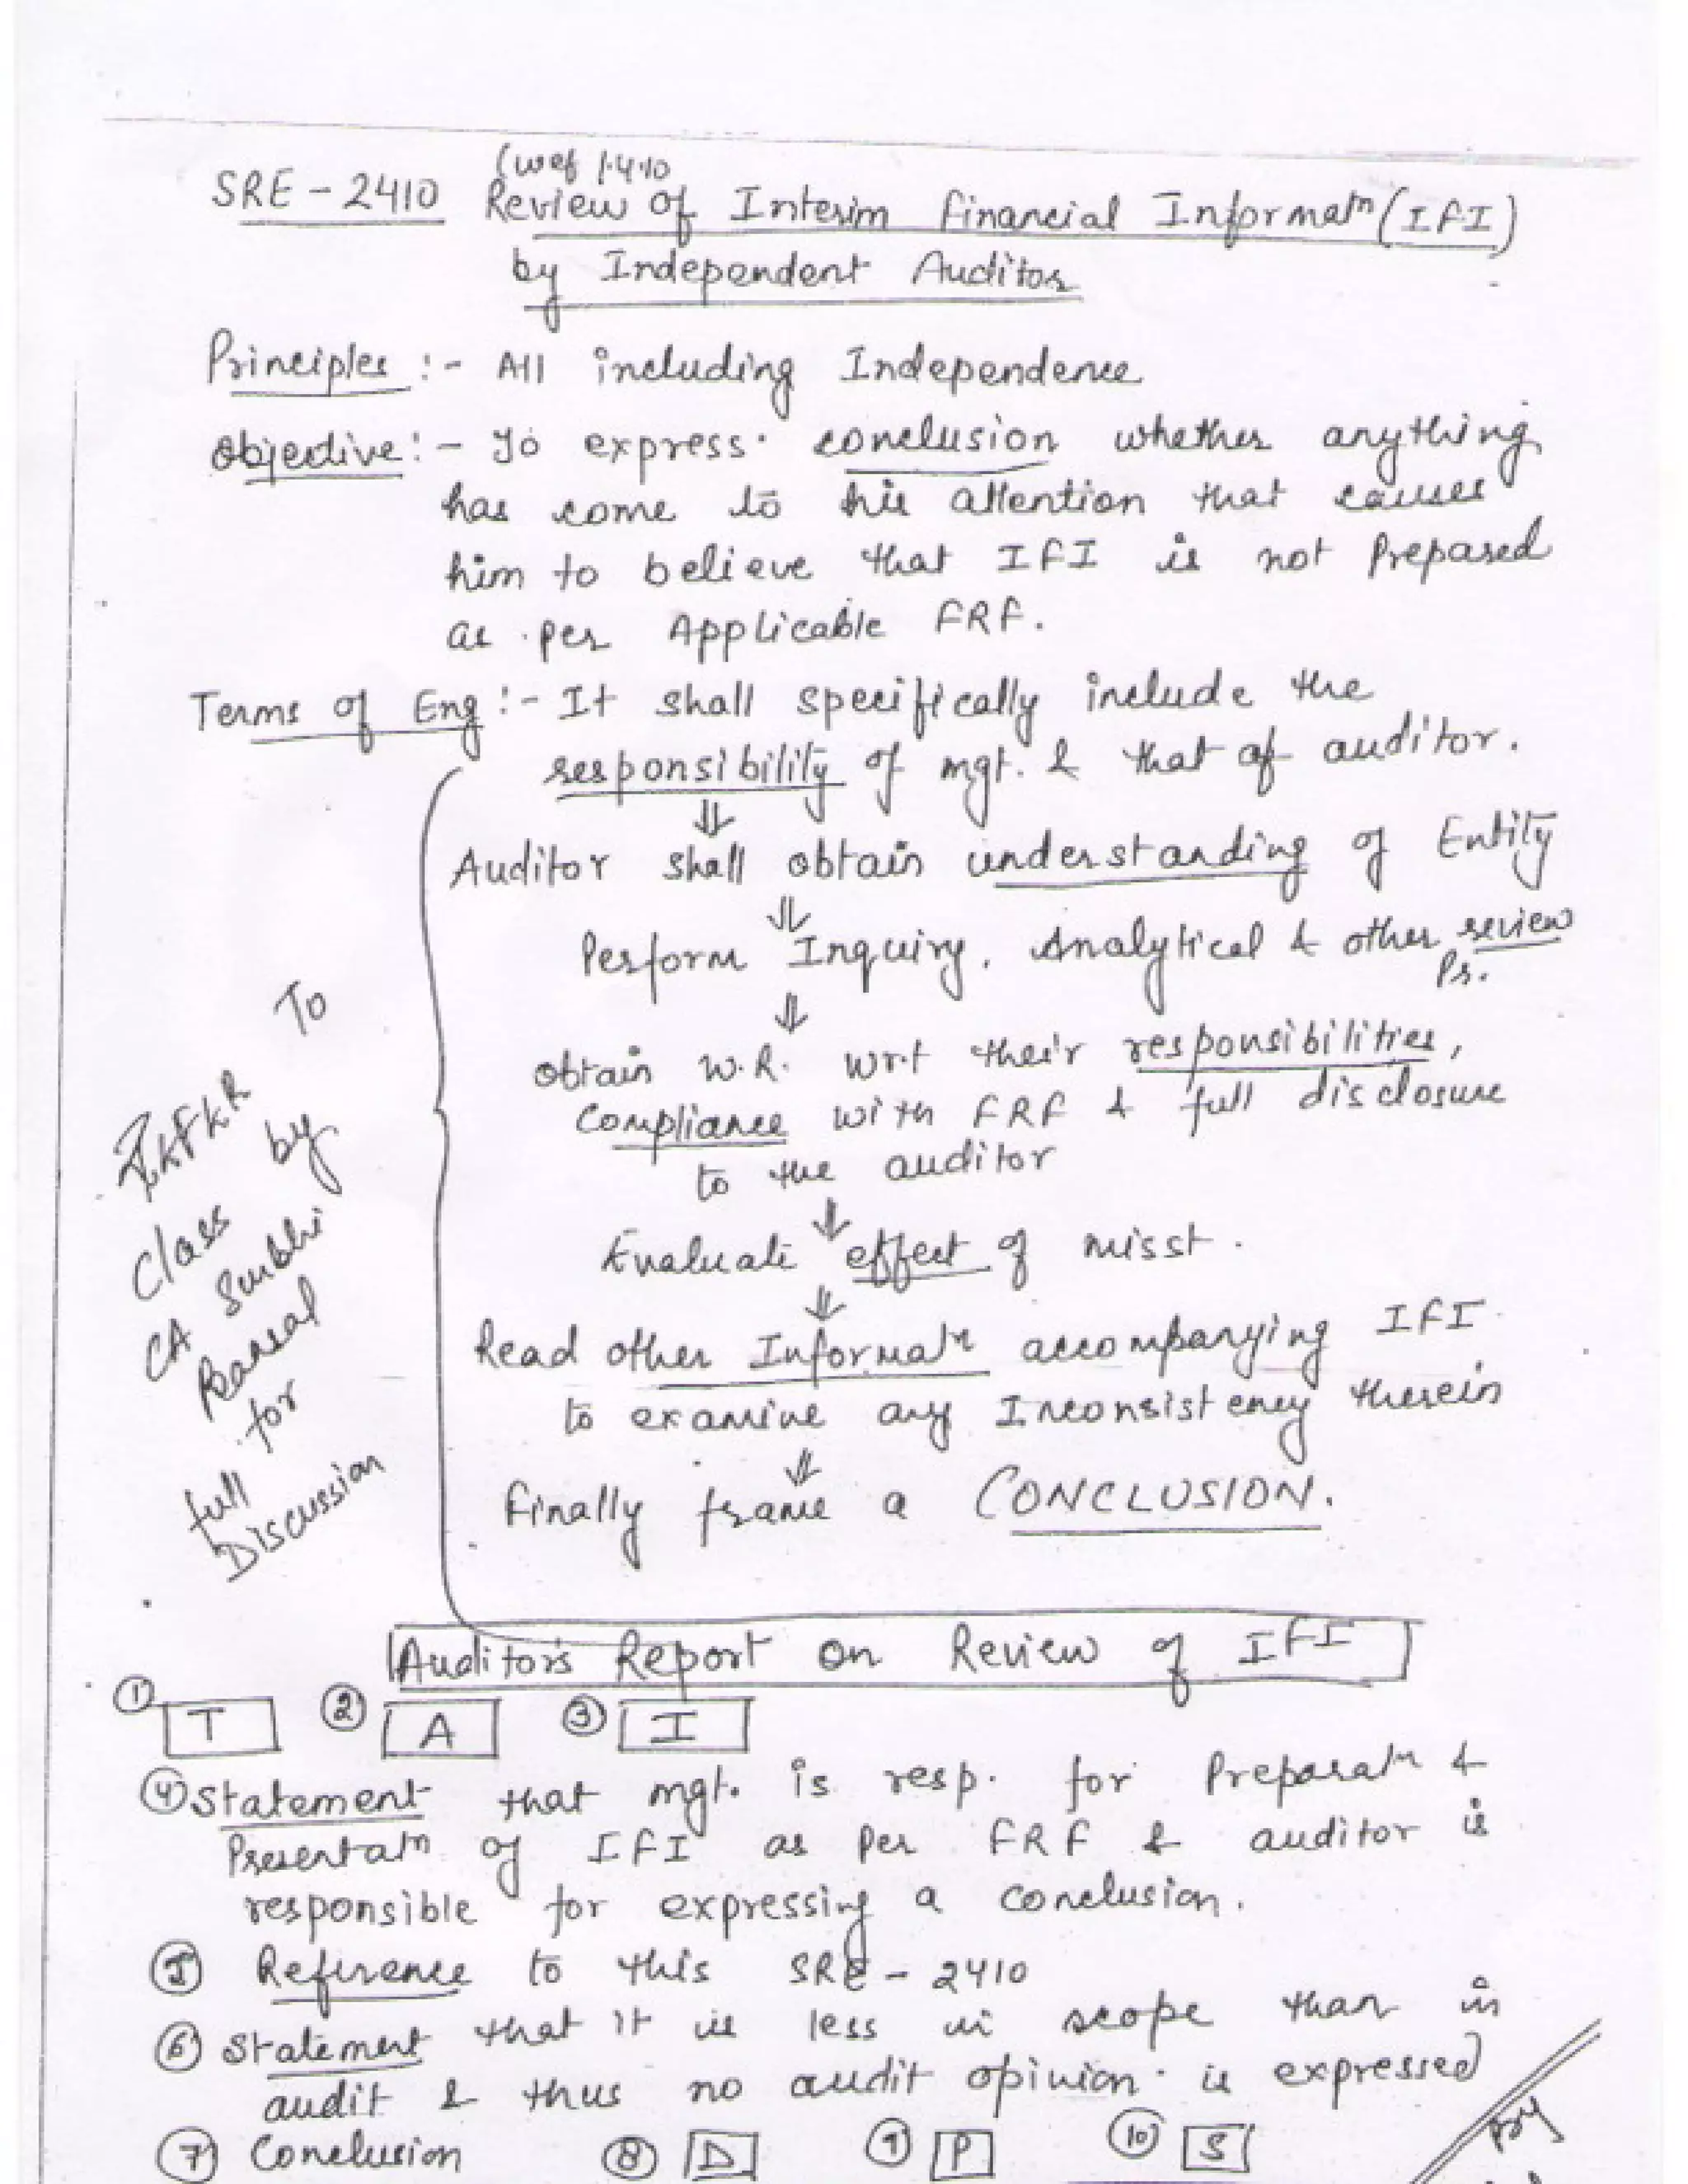 (wef 1.4.10
SRE - 2410 Review of Interim Financial Informatn (IFI)
by Independent Auditor
Principles :- All including Independence
Objective :- To express conclusion whether anything
has come to his attention that causes
him to believe that IFI is not Prepared
as per Applicable FRF.
Terms of Eng :- It shall specifically include the
responsibility of mgt. & that of auditor.
⇓
Auditor shall obtain understanding of Entity
⇓
Perform Inquiry, Analytical & other review
Pr.
⇓
Obtain W.R. wrt their responsibilities,
Compliance with FRF & full disclosure
to the auditor
⇓
Evaluate effect of misst.
⇓
Read other Informatn accompanying IFI
to examine any Inconsistency therein
⇓
Finally frame a CONCLUSION.
To
by
Class
CA Surbhi
Bansal
for
full
Discussion
Auditor's Report on Review of IFI
① T ② A ③ I
④ Statement that mgt. is resp. for Preparatn &
Presentatn of IFI as per FRF & auditor is
responsible for expressing a conclusion.
⑤ Reference to this SRE - 2410
⑥ Statement that it is less in scope than in
audit & thus no audit opinion is expressed
⑦ Conclusion ⑧ D ⑨ P ⑩ S